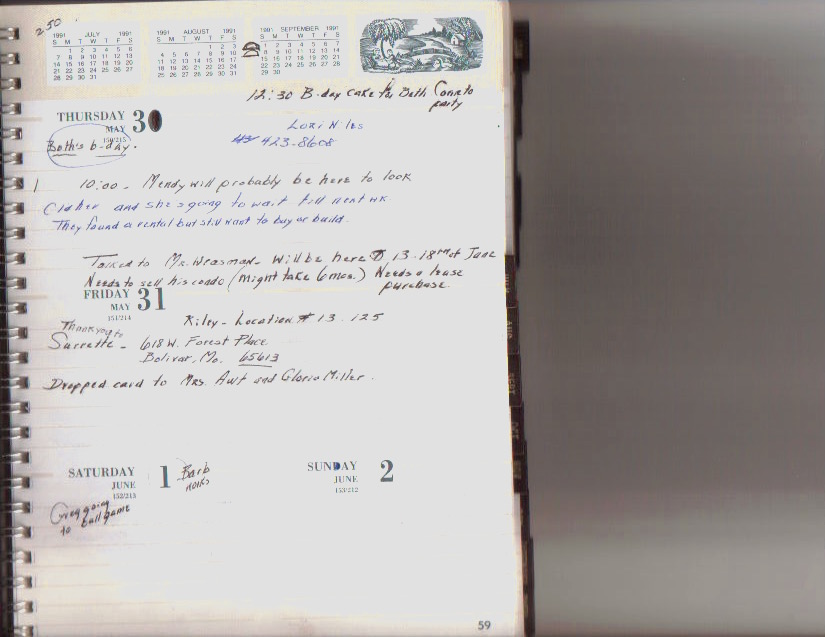 250
1991 JULY 1991
S M T W T F S
1 2 3 4 5 6
7 8 9 10 11 12 13
14 15 16 17 18 19 20
21 22 23 24 25 26 27
28 29 30 31
1991 AUGUST 1991
S M T W T F S
1 2 3
4 5 6 7 8 9 10
11 12 13 14 15 16 17
18 19 20 21 22 23 24
25 26 27 28 29 30 31
1991 SEPTEMBER 1991
S M T W T F S
1 2 3 4 5 6 7
8 9 10 11 12 13 14
15 16 17 18 19 20 21
22 23 24 25 26 27 28
29 30
12:30 B-day cake for Beth Come to
party
THURSDAY 30
MAY
150/215
Lori Niles
423-8608
Beth's b-day.
10:00 - Mendy will probably be here to look
and she's going to wait till next wk
They found a rental but still want to buy or build.
Talked to Mr. Weasman - Will be here 13-18 of June
Needs to sell his condo (might take 6 mos.) Needs a lease
purchase.
FRIDAY 31
MAY
151/214
Riley - Location # 13-125
Thank you to
Surrette - 618 W. Forest Place
Bolivar, Mo. 65613
Dropped card to Mrs. Awt and Gloria Miller.
SATURDAY 1
JUNE
152/213
Barb
works
Greg going
to ball game
SUNDAY 2
JUNE
153/212
59